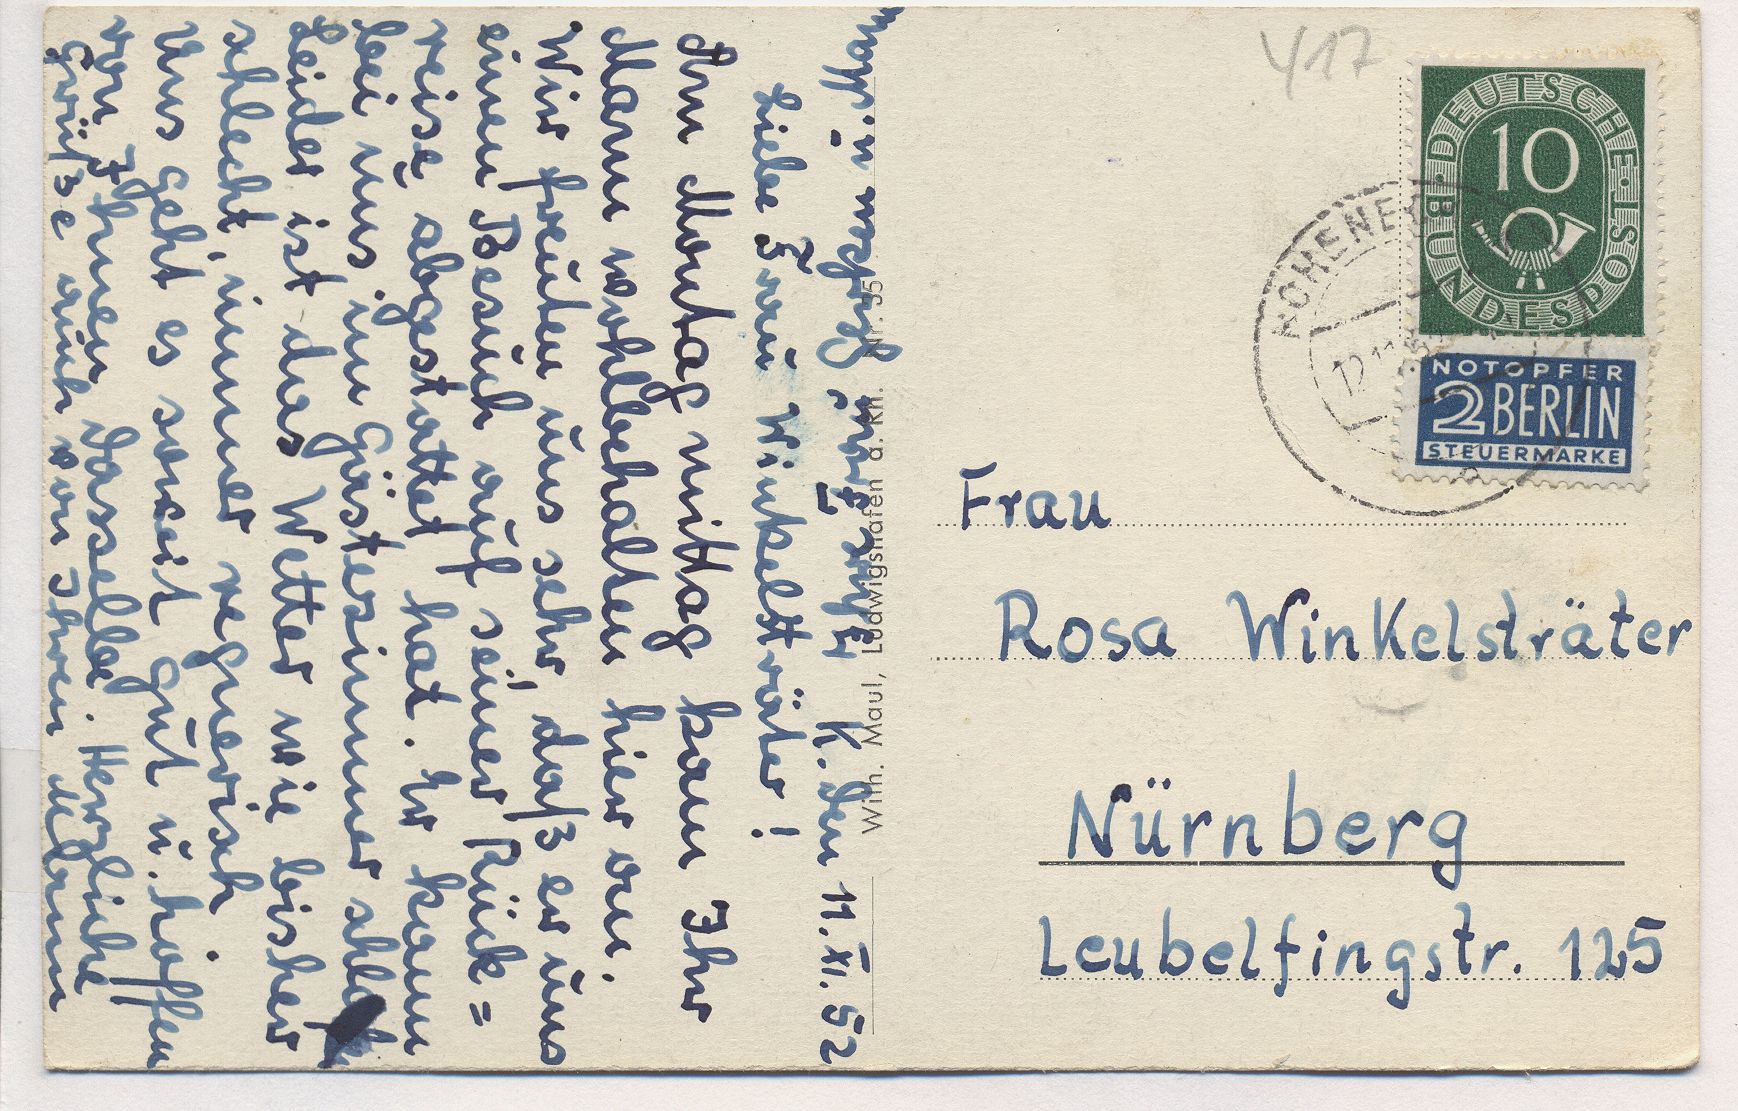 K. den 11.XI.52
Liebe Frau Winkelsträter!
Am Montag mittag kam Ihr
Mann wohlbehalten hier an.
Wir freuten uns sehr, daß er uns
einen Besuch auf seiner Rück=
reise abgestattet hat. Er kann
bei uns im Gästezimmer schlafen
Leider ist das Wetter wie bisher
schlecht, immer regnerisch
Uns geht es soweit gut u. hoffen
von Ihnen dasselbe. Herzliche
Grüße auch von Ihrem Mann
Wilh. Maul, Ludwigshafen a. Rh. Nr. 35
417
DEUTSCHE BUNDESPOST
10
NOTOPFER
2 BERLIN
STEUERMARKE
12.11.52
Frau
Rosa Winkelsträter
Nürnberg
Leubelfingstr. 125